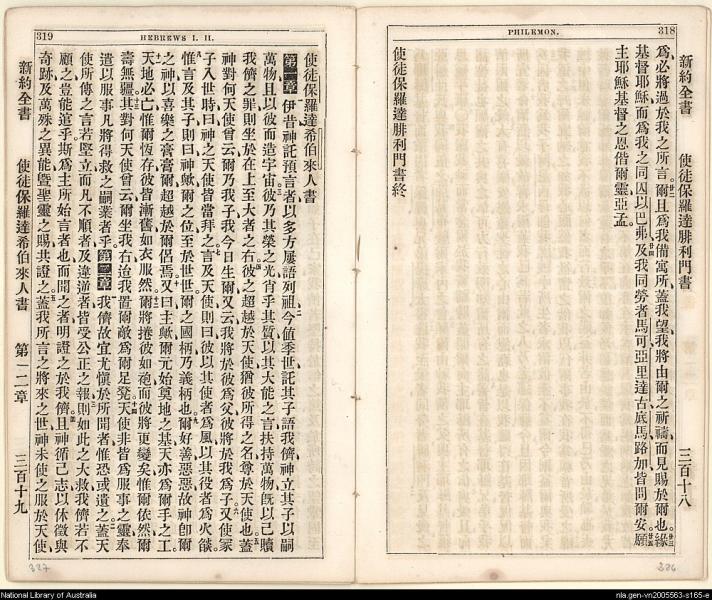 318
PHILEMON.
新約全書
使徒保羅達腓利門書
三百十八
爲必將過於我之所言爾且爲我備寓所蓋我望我將由爾之祈禱而見賜於爾也緣
基督耶穌而爲我之同囚以巴弗及我同勞者馬可亞里達古底馬路加皆問爾安願
主耶穌基督之恩偕爾靈亞孟
使徒保羅達腓利門書終
319
HEBREWS I. II.
使徒保羅達希伯來人書
第一章 伊昔神託預言者以多方屢語列祖今値季世託其子語我儕神立其子以嗣
萬物且以彼而造宇宙彼乃其榮之光肖乎其質以其大能之言扶持萬物旣以己贖
我儕之罪則坐於在上至大者之右彼之超越於天使猶彼所得之名尊於天使也蓋
神對何天使曾云爾乃我子我今日生爾又云我將於彼爲父彼將於我爲子又使冢
子入世時曰神之天使皆當拜之言及天使則曰彼以其使者爲風以其役者爲火燄
惟言及其子則曰神歟爾之位至於世世爾之國柄乃義柄也爾好善惡惡故神卽爾
之神以喜樂之膏膏爾超越於爾侶焉又曰主歟爾元始奠地之基天亦爲爾手之工
天地必亡惟爾恆存彼皆漸舊如衣服然爾將捲彼如袍而彼將更變矣惟爾依然爾
壽無疆其對何天使曾云爾坐我右迨我置爾敵爲爾足凳天使非皆爲服事之靈奉
遣以服事凡將得救之嗣業者乎 第二章 我儕故宜尤愼於所聞者惟恐或遺之蓋天
使所傳之言若堅立而凡不順者及違逆者皆受公正之報則如此之大救我儕若不
顧之豈能逭乎斯爲主所始言者也而聞之者明證之於我儕且神循己志以休徵與
奇跡及萬殊之異能曁聖靈之賜共證之蓋我所言之將來之世神未使之服於天使
新約全書
使徒保羅達希伯來人書
第一二章
三百十九
327
326
National Library of Australia
nla.gen-vn2005563-s165-e